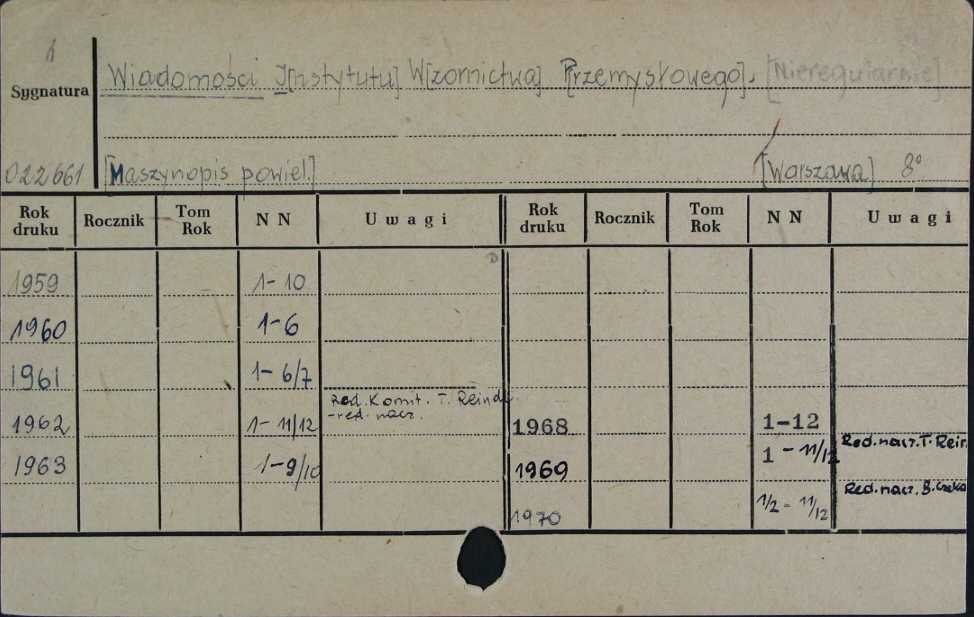 Sygnatura
Wiadomości I[nstytutu] W[zornictwa] Przemysłowego]. [Nieregularnie]
022661 [Maszynopis powiel.] [Warszawa] 8°
Rok druku Rocznik Tom Rok N N Uwagi Rok druku Rocznik Tom Rok N N Uwagi
1959 1-10
1960 1-6
1961 1-6/7
Red. Komit. T. Reindl.
-red. nacz.
1962 1-11/12 1968 1-12
Red. nacz. T. Rein
1963 1-9/10 1969 1-11/12
Red. nacz. B.
1970 1/2-11/12